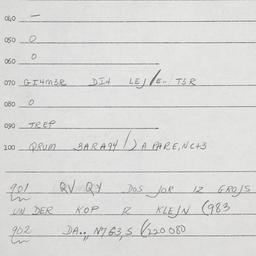 040 —
050 0
060 0
070 GI4M3R DI4 LEJ/E- T3R
080 0
090 TREP
100 QRUM 3ARA94 /) A PARE,NC+3
901 QV QY DOS JOR IZ GROJS
UN DER KOP IZ KLEJN (983
902 DA.., N763,S (220080